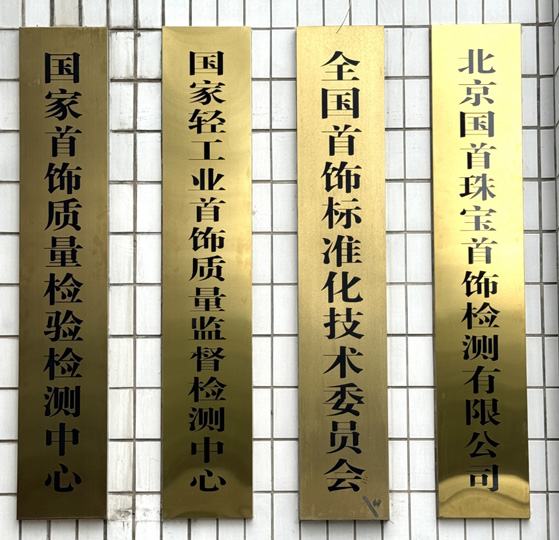 国家首饰质量检验检测中心
国家轻工业首饰质量监督检测中心
全国首饰标准化技术委员会
北京国首珠宝首饰检测有限公司